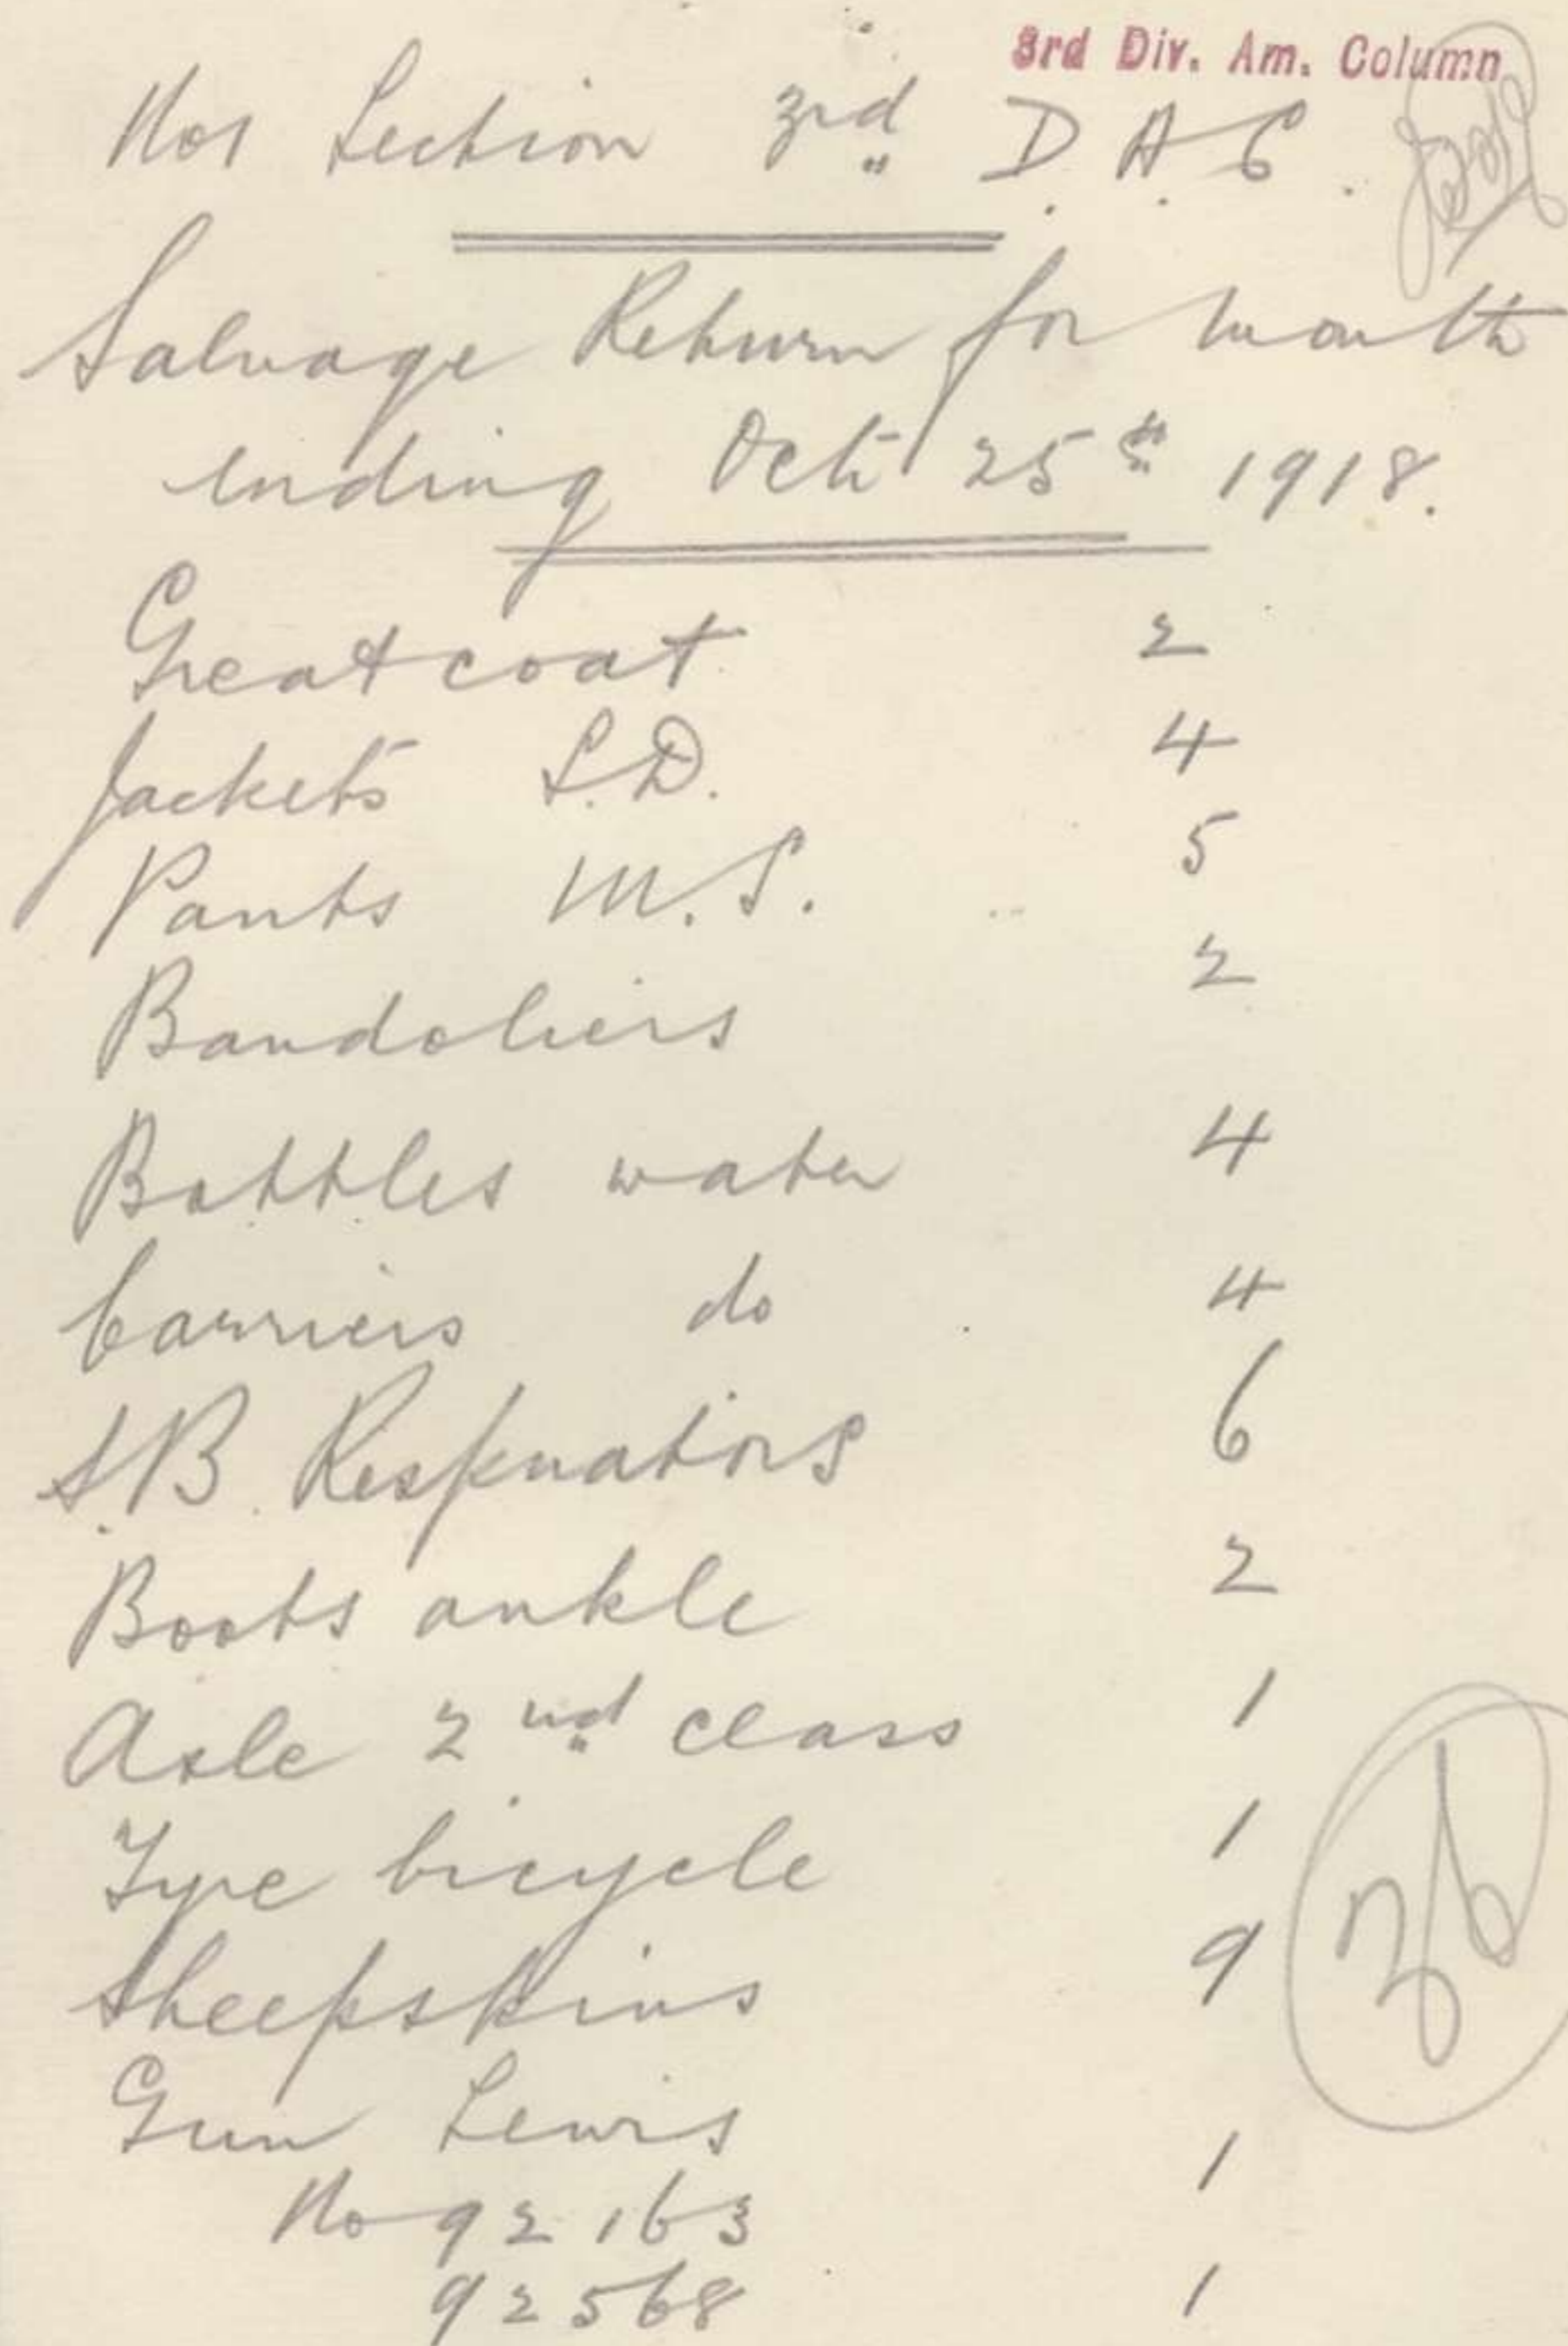 3rd Div. Am. Column
No 1 Section 3rd D.A.C.
Salvage Return for month
ending Oct 25th 1918.
Greatcoat 2
Jackets S.D. 4
Pants M.S. 5
Bandoliers 2
Bottles water 4
Carriers do 4
S.B. Respirators 6
Boots ankle 2
Axle 2nd class 1
Tyre bicycle 1
Sheepskins 9
Gun Lewis
No 92163 1
92568 1